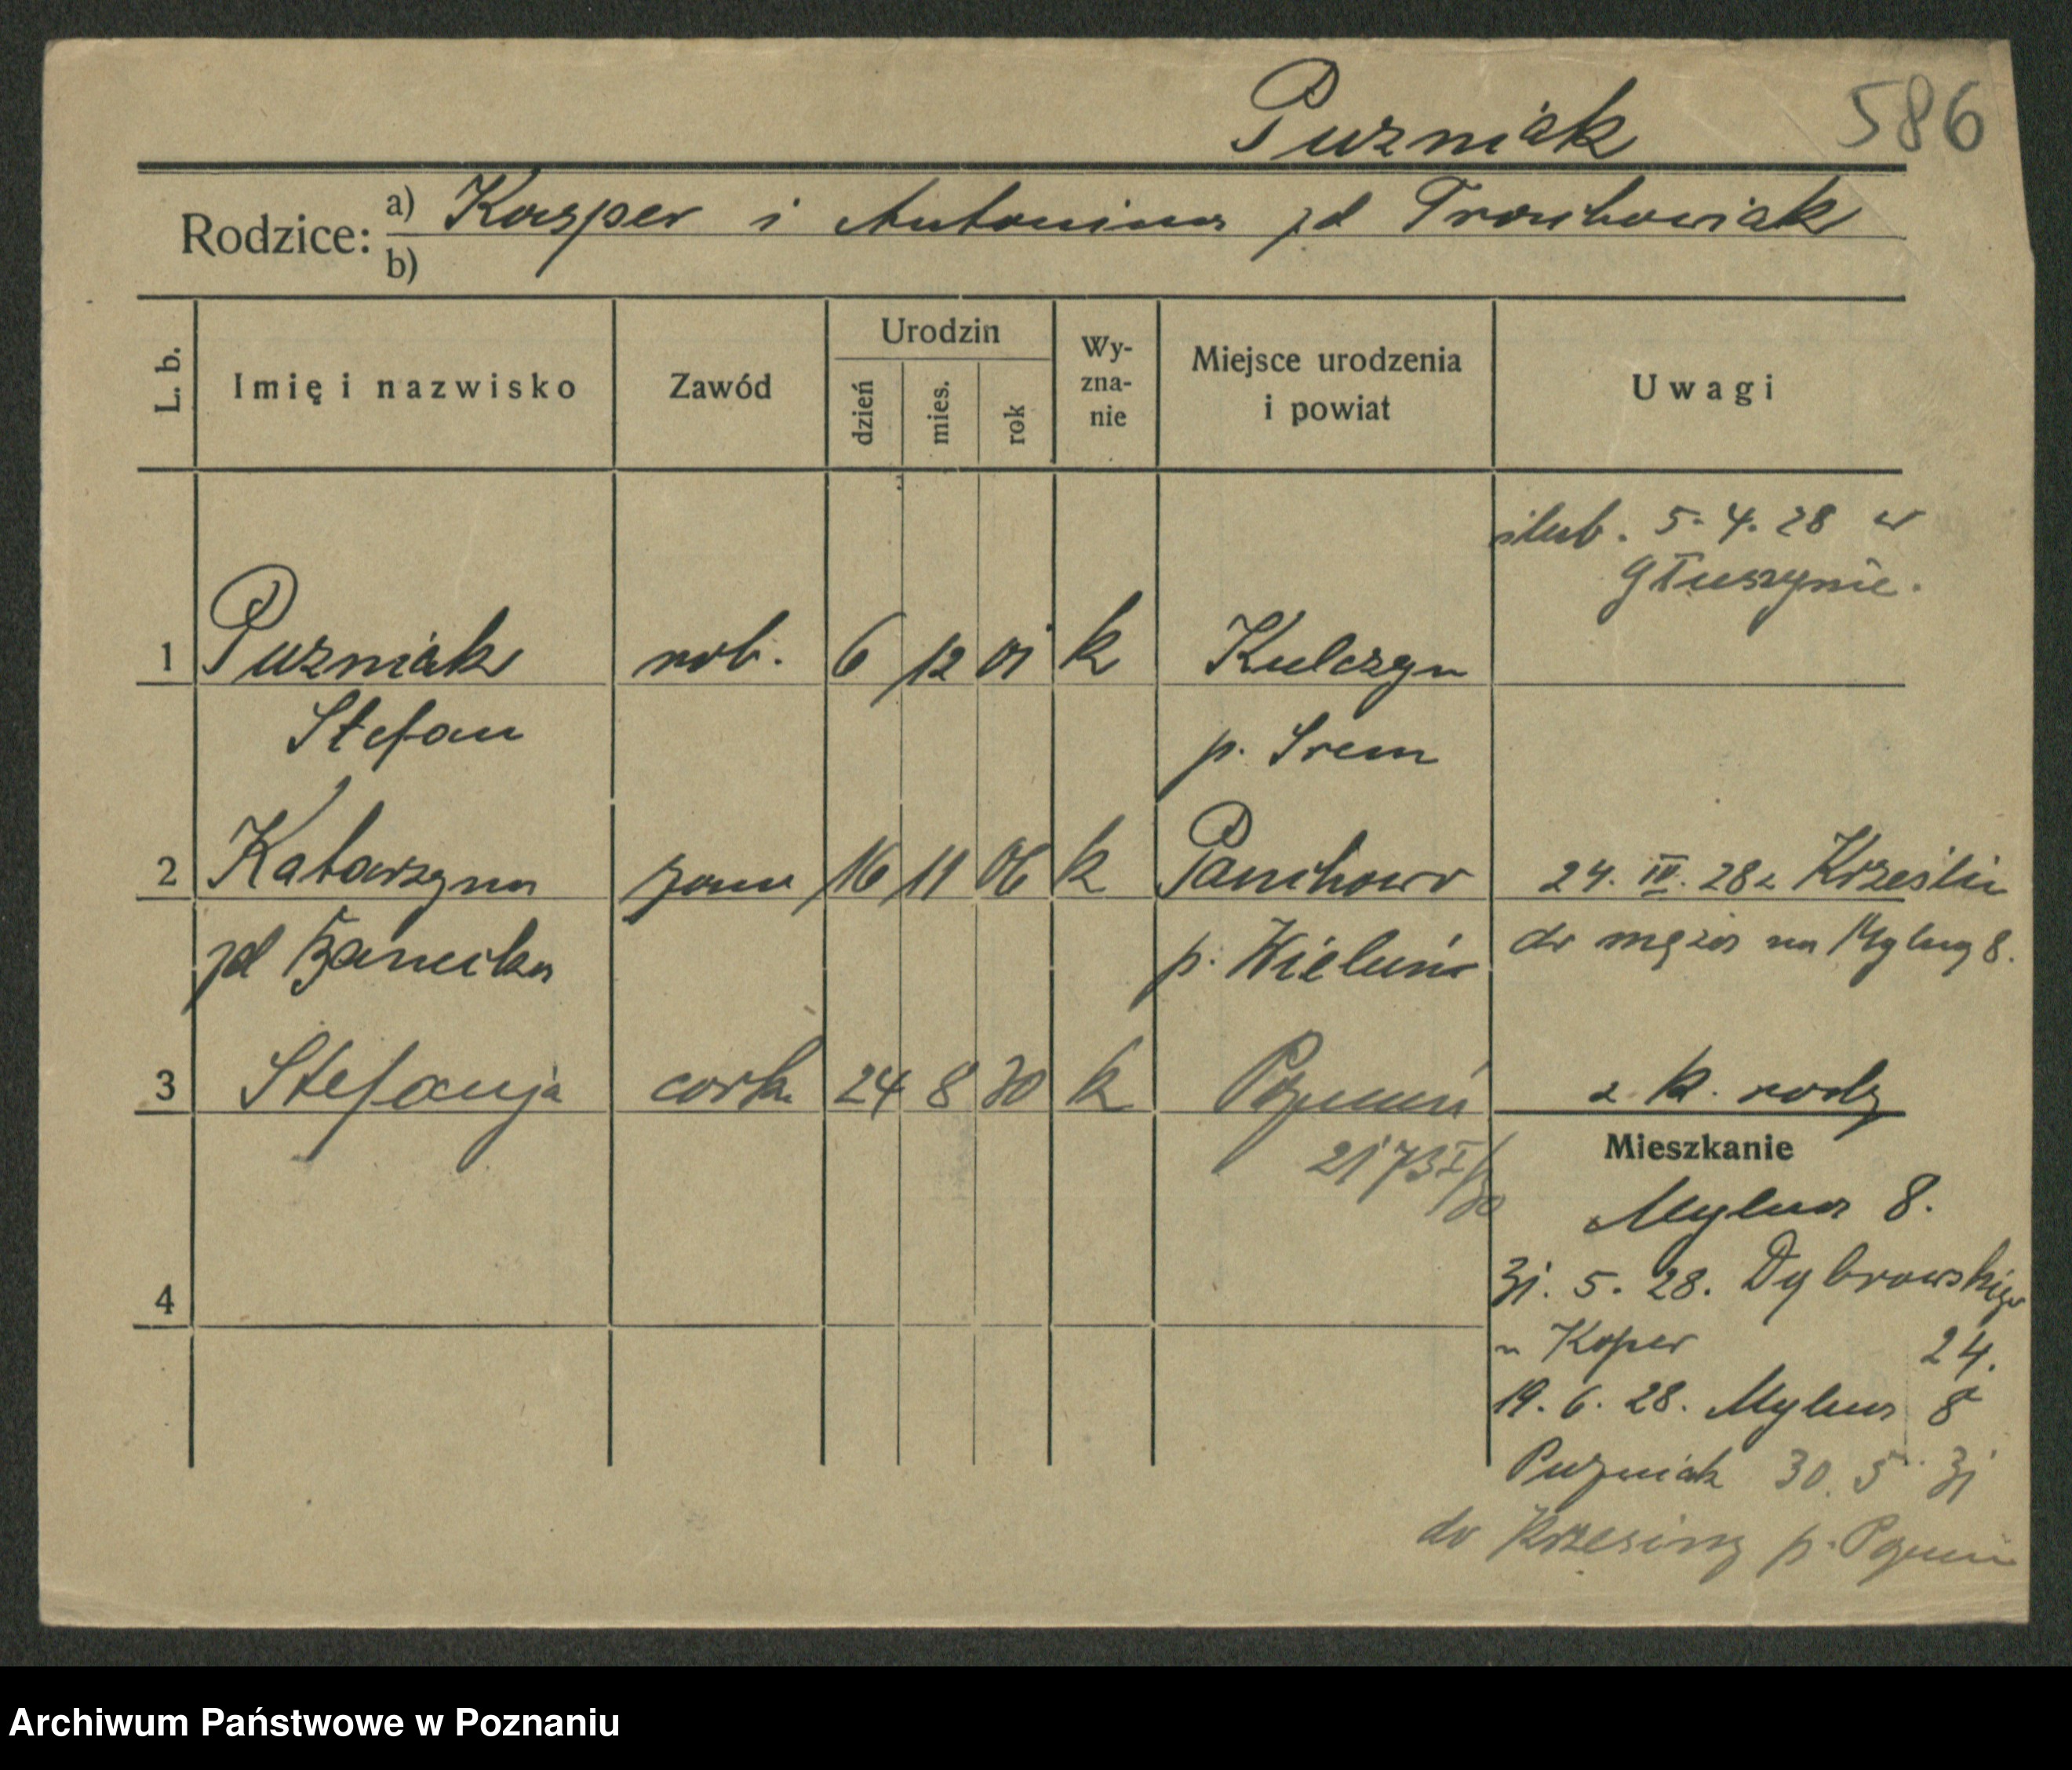 Puzniak 586
Rodzice: a) Kasper i Antonina zd
b)
L. b. Imię i nazwisko Zawód Urodzin dzień mies. rok Wy-zna-nie Miejsce urodzenia i powiat Uwagi
ślub. 5.4.28 w
Głuszynie.
1 Puzniak rob. 6 12 01 k Kulczyn
Stefan p. Srem
2 Katarzyna żona 16 11 06 k 24. IV. 28 z
zd p. Wieluń do męża na Mylną 8.
3 Stefanja corka 24 8 30 k Poznań z k. rodz
2173 I/30
Mieszkanie
Mylna 8.
31. 5. 28. Dąbrowskiego
u Koper 24.
4
19. 6. 28. Mylna 8
Puzniak 30. 5 31
do Krzesiny p. Poznań
Archiwum Państwowe w Poznaniu